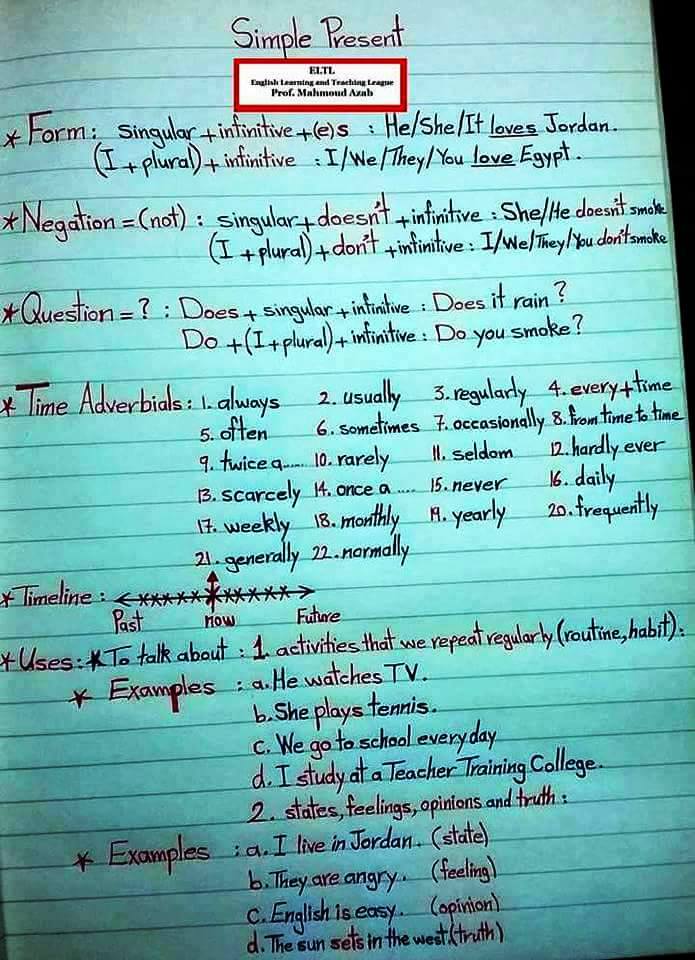 Simple Present
ELTL
English Learning and Teaching League
Prof. Mahmoud Azab
* Form: singular + infinitive + (e)s : He/She/It loves Jordan.
(I + plural) + infinitive : I/We/They/You love Egypt.
* Negation = (not) : singular + doesn't + infinitive : She/He doesn't smoke
(I + plural) + don't + infinitive : I/We/They/You don't smoke
* Question = ? : Does + singular + infinitive : Does it rain?
Do + (I + plural) + infinitive : Do you smoke?
* Time Adverbials : 1. always 2. usually 3. regularly 4. every + time
5. often 6. sometimes 7. occasionally 8. from time to time
9. twice a ...... 10. rarely 11. seldom 12. hardly ever
13. scarcely 14. once a .... 15. never 16. daily
17. weekly 18. monthly 19. yearly 20. frequently
21. generally 22. normally
* Timeline : <-xxxxxxxxxxxxx->
Past now Future
* Uses : * To talk about : 1. activities that we repeat regularly (routine, habit) :
* Examples : a. He watches TV.
b. She plays tennis.
c. We go to school everyday
d. I study at a Teacher Training College.
2. states, feelings, opinions and truth :
* Examples : a. I live in Jordan. (state)
b. They are angry. (feeling)
c. English is easy. (opinion)
d. The sun sets in the west. (truth)